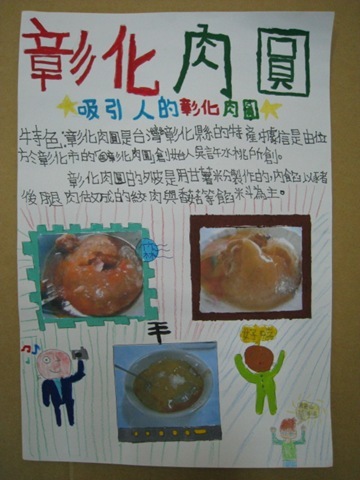 彰化肉圓
吸引人的彰化肉圓
特色:彰化肉圓是台灣彰化縣的特產,據信是由位
於彰化市的彰化肉圓創始人吳許水桃所創。
彰化肉圓的外皮是用甘薯粉製作的,內餡以豬
後腿肉做成的絞肉與香菇等餡料為主。